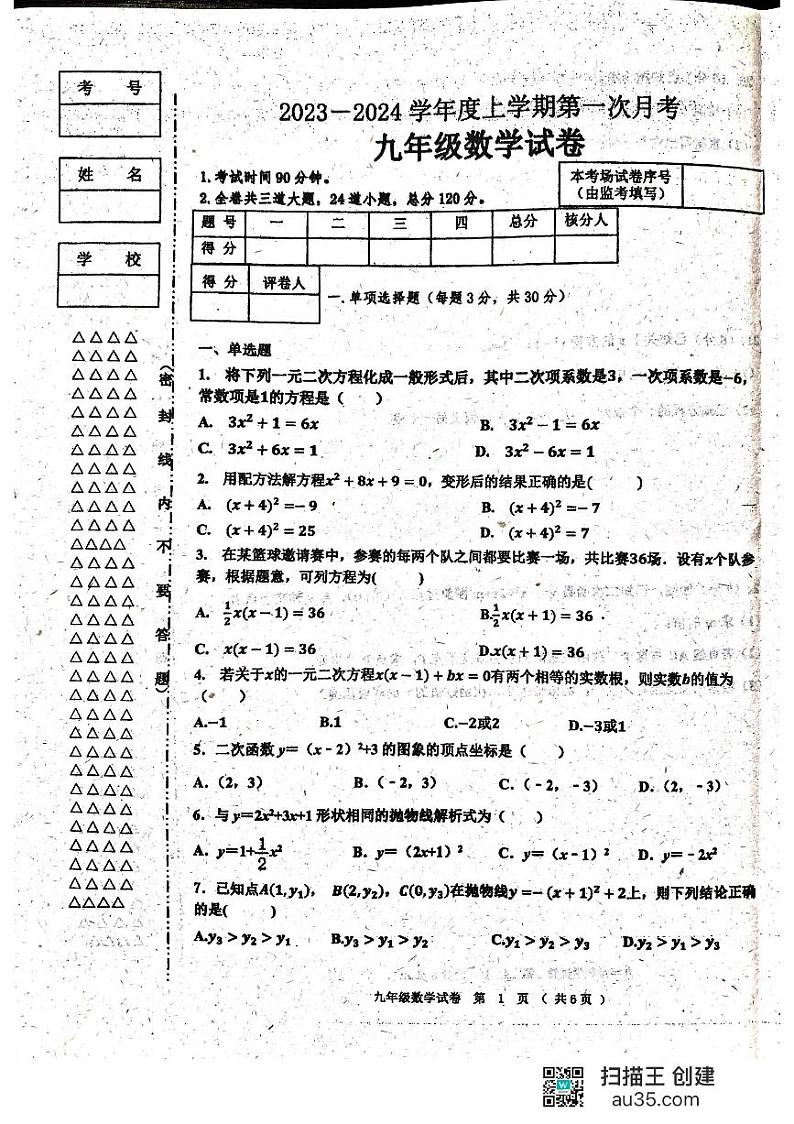 考 号
姓 名
学 校
(密封线内不要答题)
2023－2024学年度上学期第一次月考
九年级数学试卷
1.考试时间90分钟。
2.全卷共三道大题，24道小题，总分120分。
本考场试卷序号
（由监考填写）
题 号 一 二 三 四 总分 核分人
得 分
得 分 评卷人
一.单项选择题（每题3分，共30分）
一、单选题
1. 将下列一元二次方程化成一般形式后，其中二次项系数是3，一次项系数是−6，
常数项是1的方程是（ ）
A. 3x²+1=6x B. 3x²−1=6x
C. 3x²+6x=1 D. 3x²−6x=1
2. 用配方法解方程x²+8x+9=0，变形后的结果正确的是( )
A. (x+4)²=−9 B. (x+4)²=−7
C. (x+4)²=25 D. (x+4)²=7
3. 在某篮球邀请赛中，参赛的每两个队之间都要比赛一场，共比赛36场．设有x个队参
赛，根据题意，可列方程为( )
A. ½x(x−1)=36 B.½x(x+1)=36
C. x(x−1)=36 D.x(x+1)=36
4. 若关于x的一元二次方程x(x−1)+bx=0有两个相等的实数根，则实数b的值为
（ ）
A.−1 B.1 C.−2或2 D.−3或1
5．二次函数y＝（x﹣2）²+3的图象的顶点坐标是（ ）
A．（2，3） B．（﹣2，3） C．（﹣2，﹣3） D．（2，﹣3）
6．与y=2x²+3x+1形状相同的抛物线解析式为（ ）
A．y=1+½x² B．y=（2x+1）² C．y=（x﹣1）² D．y=﹣2x²
7．已知点A(1,y₁)， B(2,y₂)，C(0,y₃)在抛物线y=−(x+1)²+2上，则下列结论正确
的是( )
A.y₃>y₂>y₁ B.y₃>y₁>y₂ C.y₁>y₂>y₃ D.y₂>y₁>y₃
九年级数学试卷 第 1 页（共6页）
扫描王 创建
au35.com